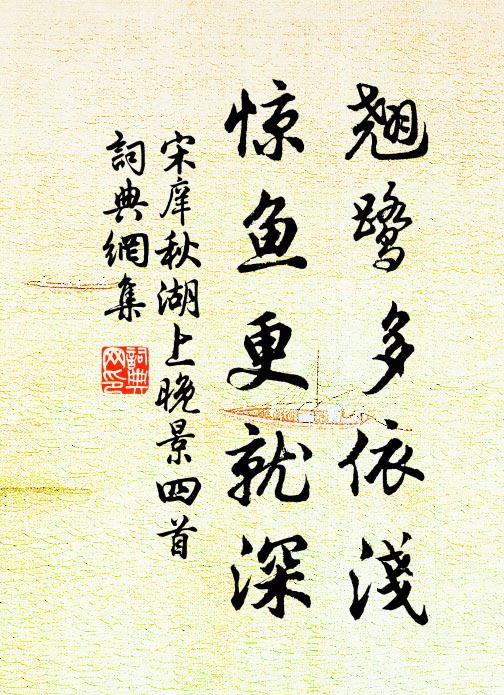 翘鹭多依淺
惊鱼更就深
宋庠秋湖上晚景四首
詞典網集
詞典网印